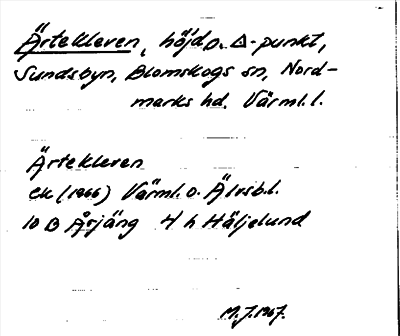 Ärtekleven, höjd o. Δ-punkt,
Sundsbyn, Blomskogs sn, Nord-
marks hd. Värml. l.
Ärtekleven
ek (1966) Värml. o. Älvsb. l.
10 B Årjäng 4 h Häljelund
M.J. 1967.